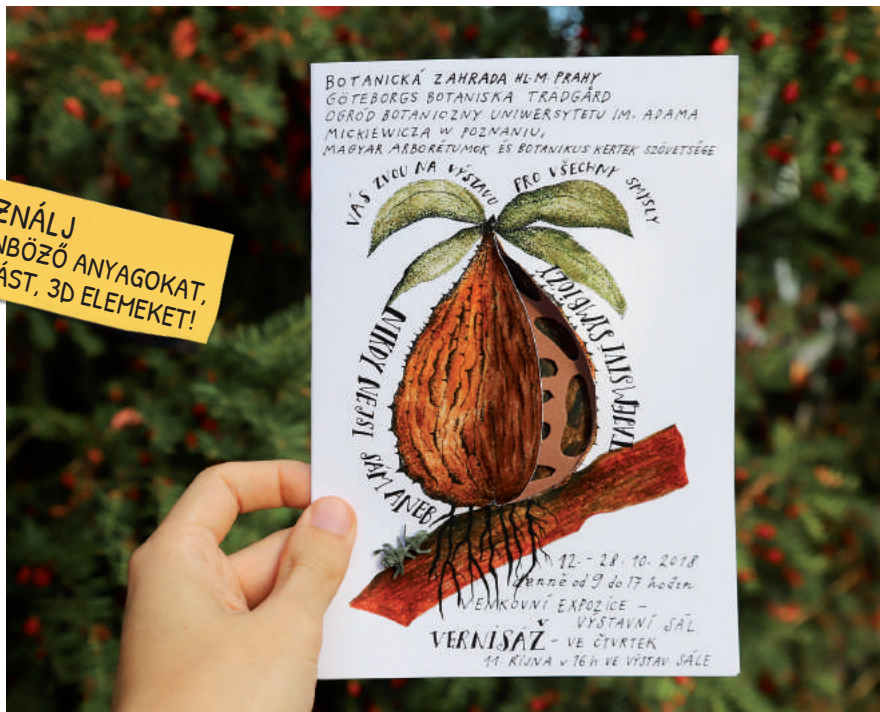 ZNÁLJ
NBÖZŐ ANYAGOKAT,
ÁST, 3D ELEMEKET!
BOTANICKÁ ZAHRADA HL. M. PRAHY
GÖTEBORGS BOTANISKA TRÄDGÅRD
OGRÓD BOTANICZNY UNIWERSYTETU IM. ADAMA
MICKIEWICZA W POZNANIU,
MAGYAR ARBORÉTUMOK ÉS BOTANIKUS KERTEK SZÖVETSÉGE
VÁS ZVOU NA VÝSTAVU PRO VŠECHNY SMYSLY
NIKDY NEJSI SÁM ANEB
TAJEMSTVÍ SYMBIÓZY
12. - 28. 10. 2018
denně od 9 do 17 hodin
VENKOVNÍ EXPOZICE -
VÝSTAVNÍ SÁL
VERNISÁŽ - VE ČTVRTEK
11. ŘÍJNA v 16 h VE VÝSTAV. SÁLE